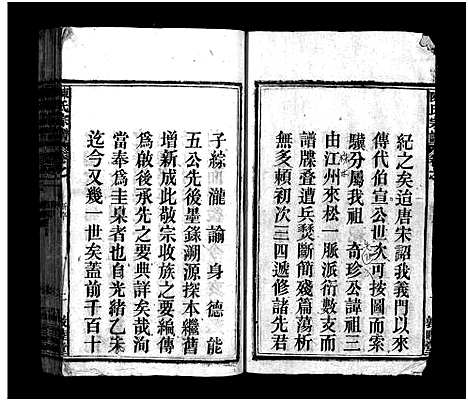 紀之矣迨唐宋詔我義門以來
傳代伯宣公世次可按圖而索
驥分屬我祖 奇珍公諱祖三
由江州來松一脈派衍數支而
譜牒叠遭兵燹斷簡殘篇蕩析
無多頼初次三四遞修諸先君
子綜瀧諭身德能
五公先後墨錄溯源探本繼舊
增新成此敬宗收族之要編傳
為啟後承先之要典詳矣哉洵
當奉為圭臬者也自光緒乙未
迄今又幾一世矣蓋前千百十